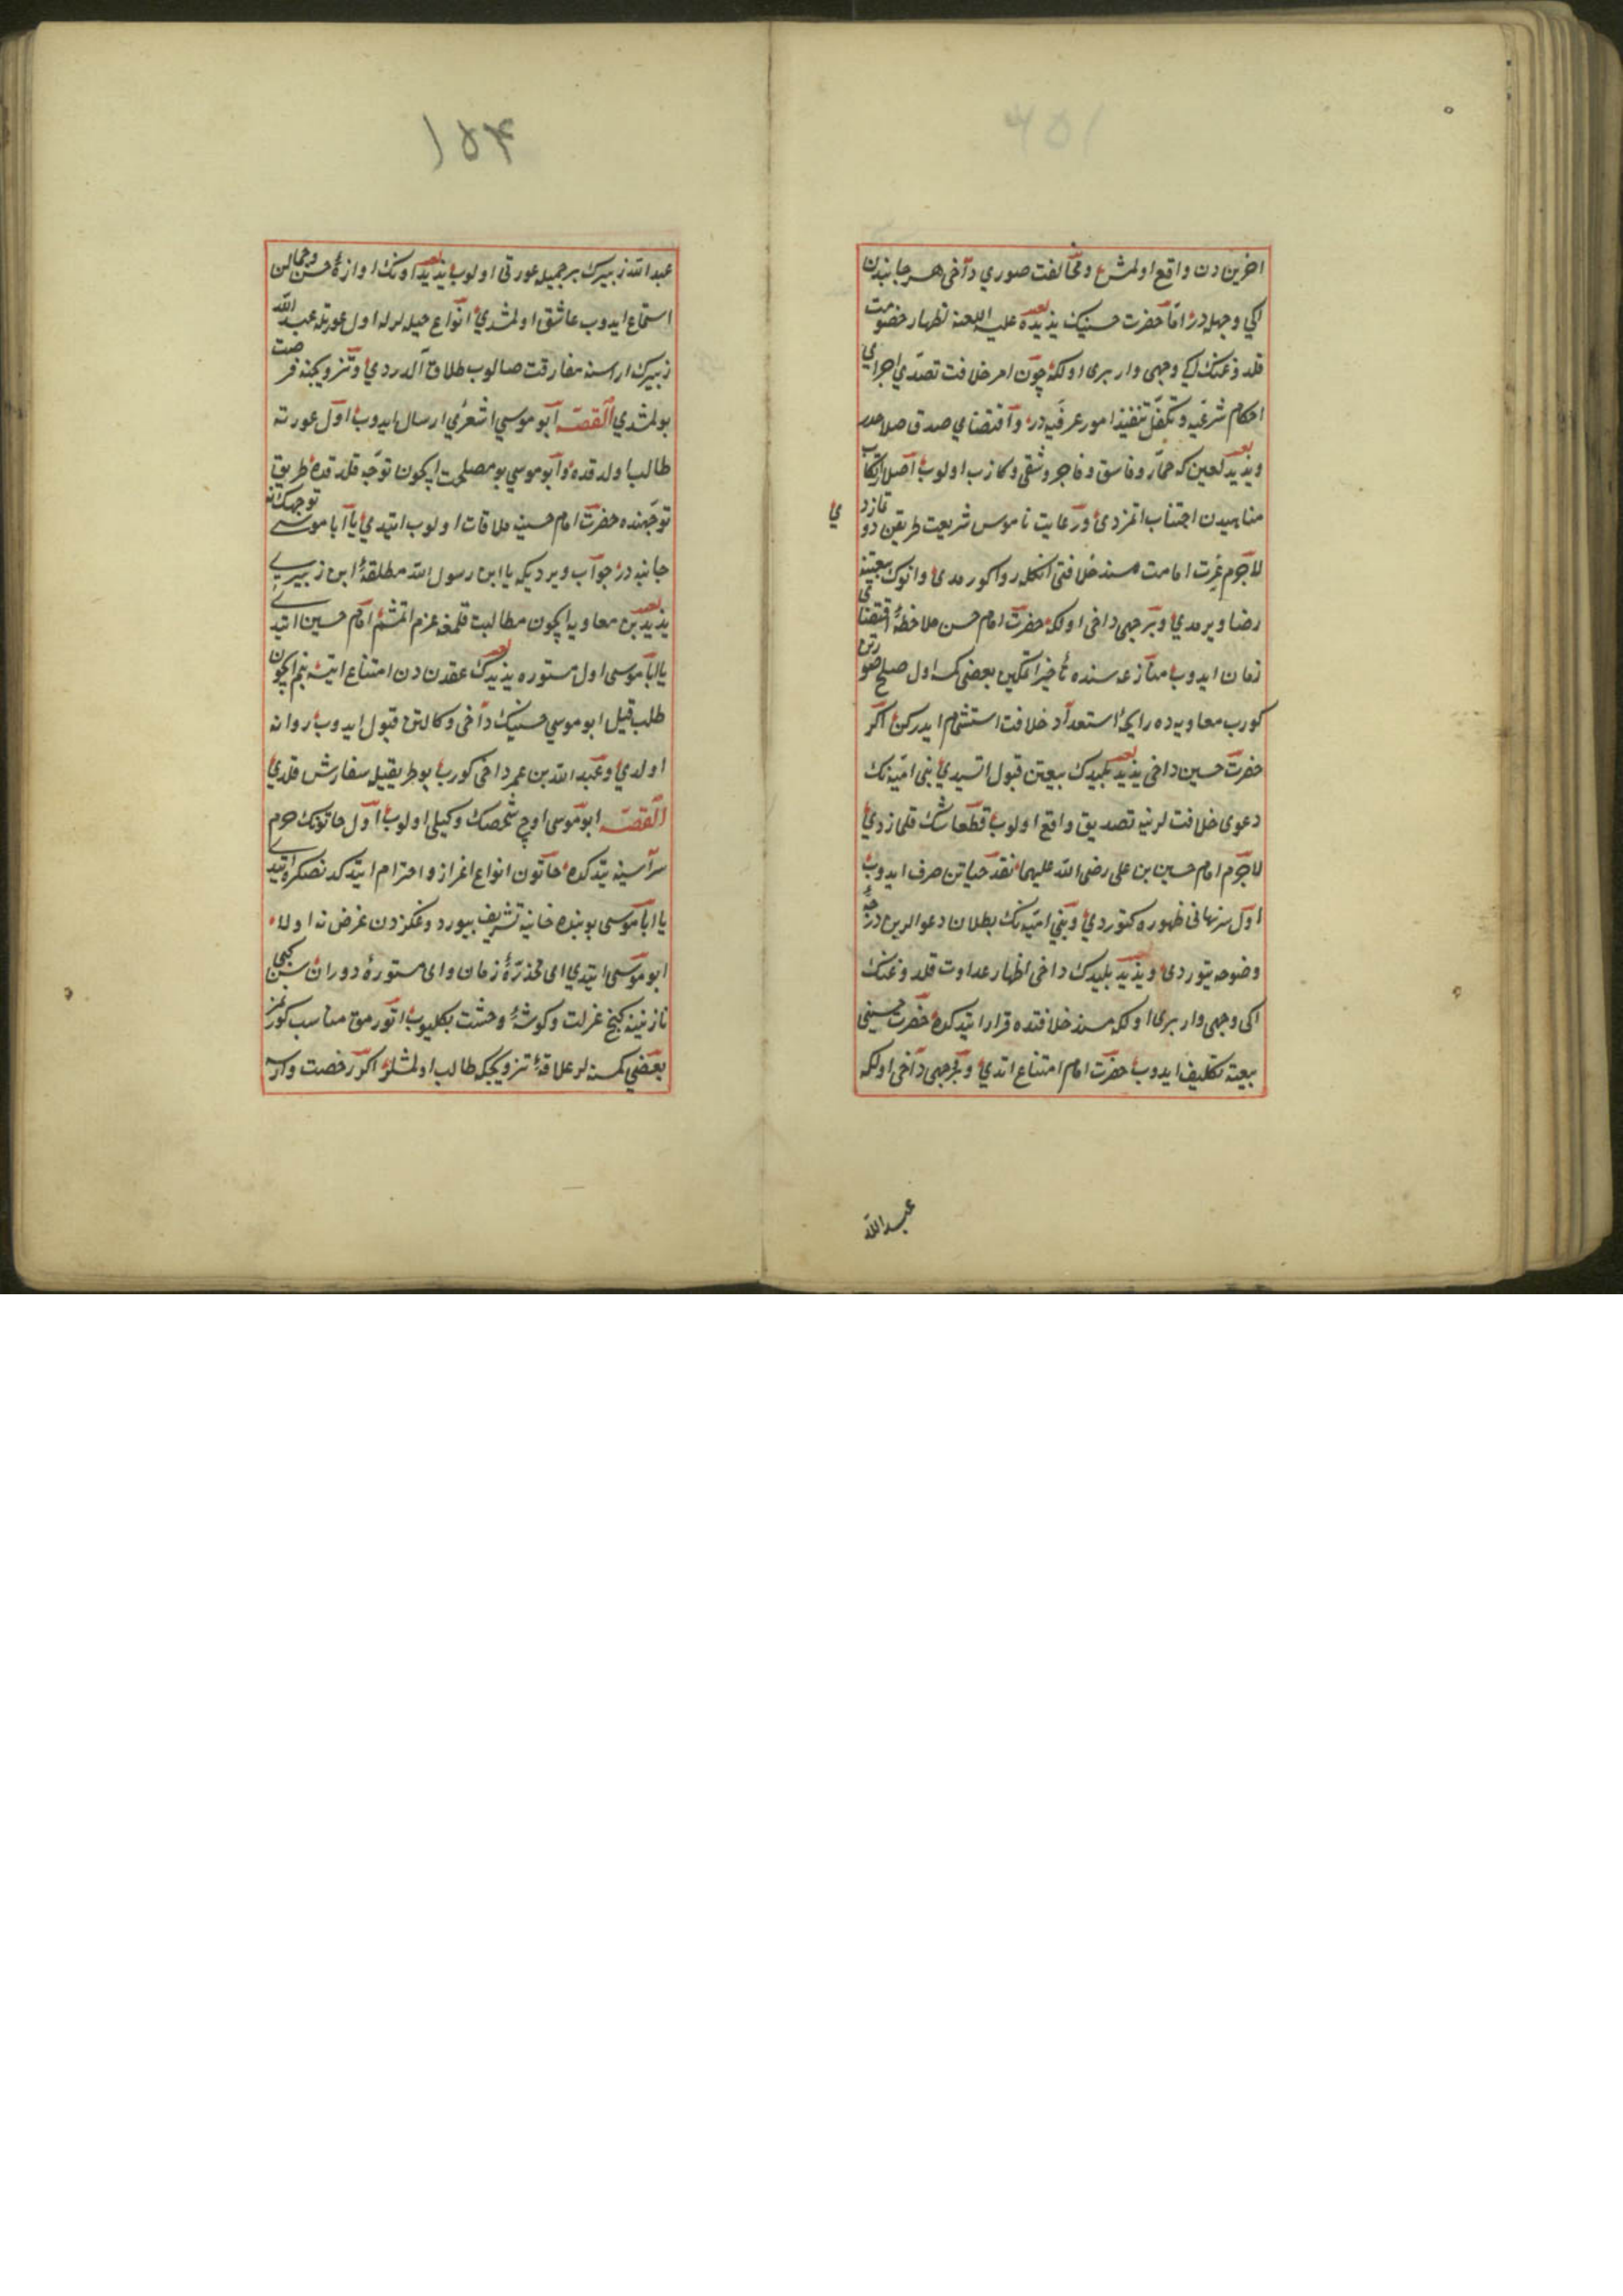 اخرین دن واقع اولمش و مخالفت صوری داخی هر جانبدن
ایکی وجهله در اما حضرت حسینیك یذیده علیه اللعنه اظهار خصومت
قلدوغنك ایکی وجهی وار بری اولکه چون امر خلافت تصدی اجرای
احکام شرعیه و تکفل تنفیذ امور عرفیه در و اقتضای صدق صلاحدر
ویذید لعین که خمار و فاسق و فاجر و شقی و کازب اولوب اصلا ارتکاب
مناهیدن اجتناب اتمزدی و رعایت ناموس شریعت طریقن دو تازدی
لاجرم غیرت امامت مسند خلافتی انکله روا کورمدی و انوك بیعتینه
رضا ویرمدی و بر جهی داخی اولکه حضرت امام حسن ملاحظۀ اقتضای
زمان ایدوب منازعه سنده تأخیر اتمکین بعضی کمسه اول صلح صورتن
کورب معاویه ده رایحۀ استعداد خلافت استشمام ایدرکن اکر
حضرت حسین داخی یذید پلیدك بیعتن قبول اتسیدی بنی امیه نك
دعوی خلافت لرنیه تصدیق واقع اولوب قطعا شك قلمازدی
لاجرم امام حسین بن علی رضی الله علیهما نقد حیاتن صرف ایدوب
اول سر نهانی ظهوره کتوردی و بنی امیه نك بطلان دعوالرین درجۀ
وضوحه یتوردی و یذید پلیدك داخی اظهار عداوت قلدوغنك
اکی وجهی وار بری اولکه مسند خلافتده قرار ایتدکده حضرت حسینی
بیعته تکلیف ایدوب حضرت امام امتناع اتدی و بر جهی داخی اولکه
عبدالله
۱۵۴
عبدالله زبیرك بر جمیله عورتی اولوب یذید اونك اوازۀ حسن و جمالن
استماع ایدوب عاشق اولمشدی انواع حیله لرله اول عورتله عبدالله
زبیرك اراسنه مفارقت صالوب طلاق الدردی و تزویجنه فرصت
بولمشدی القصه ابو موسی اشعری ارسال ایدوب اول عورته
طالب اولدقده و ابو موسی بو مصلحت ایچون توجه قلدقده طریق
توجهنده حضرت امام حسینه ملاقات اولوب ایتدی یا ابا موسی توجهك نه
جانبه در جواب ویردیکه یا ابن رسول الله مطلقۀ ابن زبیری
یذید بن معاویه ایچون مطالبت قلمغه عزم اتمشم امام حسین ایتدی
یا ابا موسی اول مستوره یذیدك عقدن دن امتناع ایتسه بنم ایچون
طلب قیل ابو موسی حسینیك داخی وکالتن قبول ایدوب روانه
اولدی و عبدالله بن عمر داخی کورب بو طریقیله سفارش قلدی
القصه ابو موسی اوچ شخصك وکیلی اولوب اول خاتونك حرم
سراسینه یتدکده خاتون انواع اغزاز و احترام ایتدکدنصکره ایتدی
یا ابا موسی بو بنده خانیه تشریف بیوردوغکزدن غرض نه اولا
ابو موسی ایتدی ای مخدرۀ زمان و ای مستورۀ دوران سن کبی
نازنینه کنج عزلت و کوشۀ وحشت بکلیوب اتورمق مناسب کورنمز
بعضی کمسنه لر علاقۀ تزویجکه طالب اولمشلر اکر رخصت وارسه